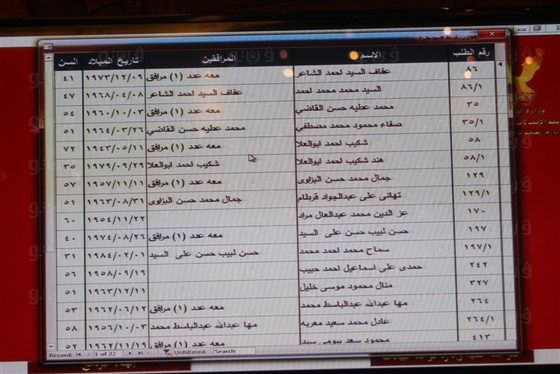 رقم الطلب الاسم المرافقين تاريخ الميلاد السن
٨٦ عفاف السيد احمد الشاعر معه عدد (١) مرافق ١٩٧٣/١٢/٠٩ ٤١
٨٦/١ السيد محمد محمد احمد عفاف السيد احمد الشاعر ١٩٦٨/٠٤/٠٨ ٤٧
٣٥ محمد عطيه حسن القاضي معه عدد (١) مرافق ١٩٦٠/١٠/٠٣ ٥٤
٣٥/١ صفاء محمود محمد مصطفي محمد عطيه حسن القاضي ١٩٦٤/٠٣/٢٦ ٥١
٥٨ شكيب احمد ابوالعلا معه عدد (١) مرافق ١٩٤٣/٠٥/١١ ٧٢
٥٨/١ هند شكيب احمد ابوالعلا شكيب احمد ابوالعلا ١٩٧٩/٠٩/٢٦ ٣٥
١٢٩ جمال محمد حسن البزاوى معه عدد (١) مرافق ١٩٥٧/١١/١١ ٥٧
١٢٩/١ تهانى على عبدالجواد قرطام جمال محمد حسن البزاوى ١٩٦٣/٠٨/٣١ ٥١
١٧٠ عز الدين محمد عبدالعال مراد ١٩٥٤/١١/٢٢ ٦٠
١٩٧ حسن لبيب حسن على السيد معه عدد (١) مرافق ١٩٧٤/٠٨/٢٦ ٤٠
١٩٧/١ سماح محمد احمد محمد حسن لبيب حسن على السيد ١٩٨٤/٠٢/٠١ ٣١
٢٤٢ حمدى على اسماعيل احمد حبيب ١٩٥٨/٠٩/١٩ ٥٦
٣٢٧ منال محمود موسى خليل ١٩٦٣/١٢/١١ ٥١
٢٦٤ مها عبدالله عبدالباسط محمد معه عدد (١) مرافق ١٩٦٢/٠٦/١٢ ٥٣
٢٦٤/١ عادل محمد سعيد معربه مها عبدالله عبدالباسط محمد ١٩٥٦/١٠/٠٣ ٥٨
٤١٣ محمود سعد بيومى سيد معه عدد (١) مرافق ١٩٦٢/١١/١٩ ٥٢
Record: 1 of 22 Unfiltered Search